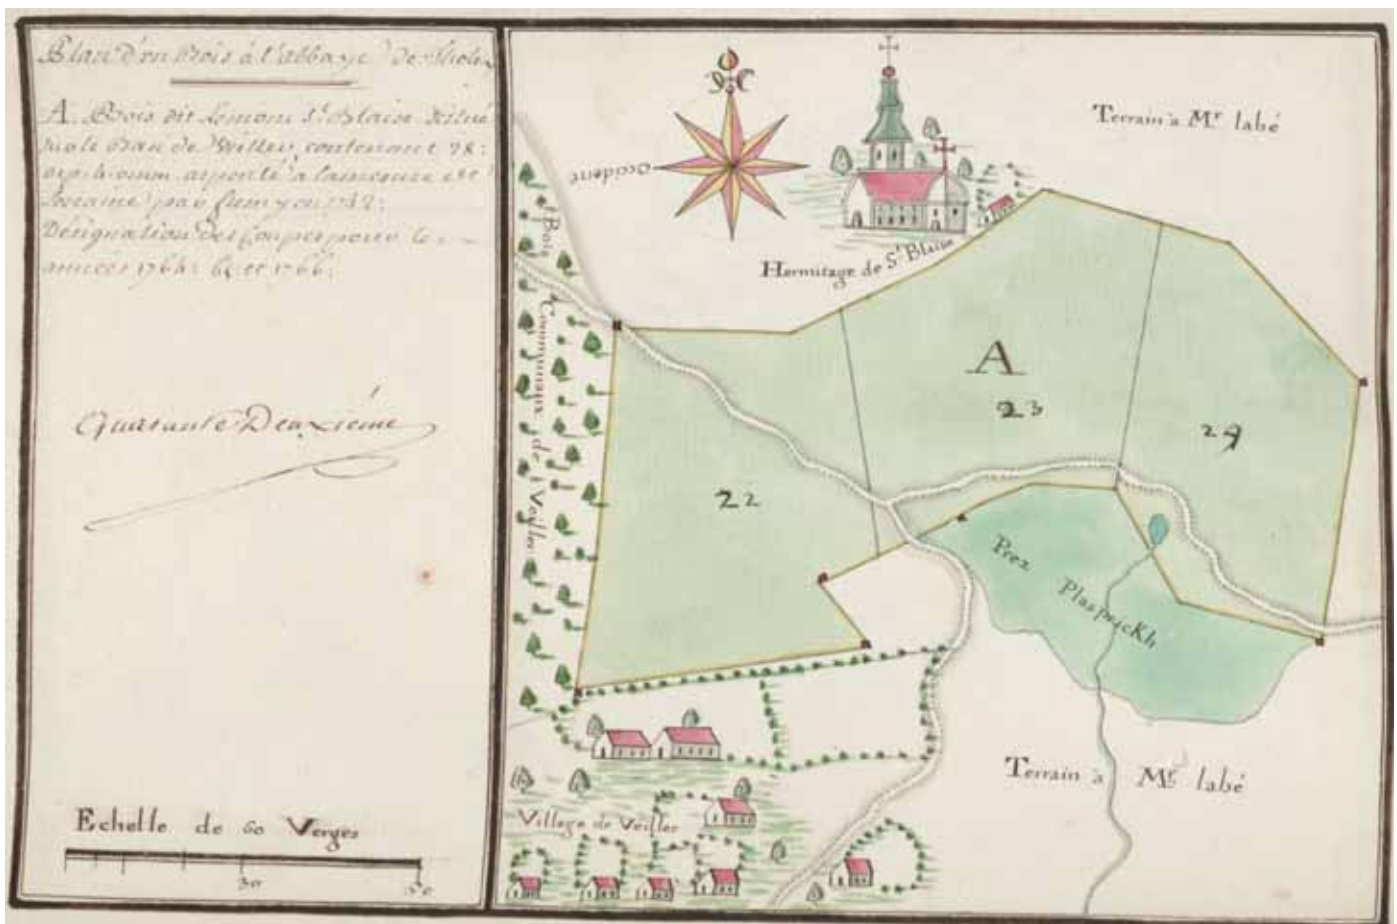 Plan d'un Bois à l'abbaye De
A Bois dit Lemont St. Blaise Situé
Sur le Ban de Veiller contenant 78:
arp. 4 omm. arpenté à la mesure de
Loraine par
Désignation des Coupes pour les
années 1764: 65 et 1766:
Quarante Deuxième
Echelle de 60 Verges
30
Occident
Hermitage de St Blaise
Terrain à Mr labé
Bois
Communaux de Veiller
A
22
23
24
Prez
Plasprickh
Terrain à Mr labé
Village de Veiller